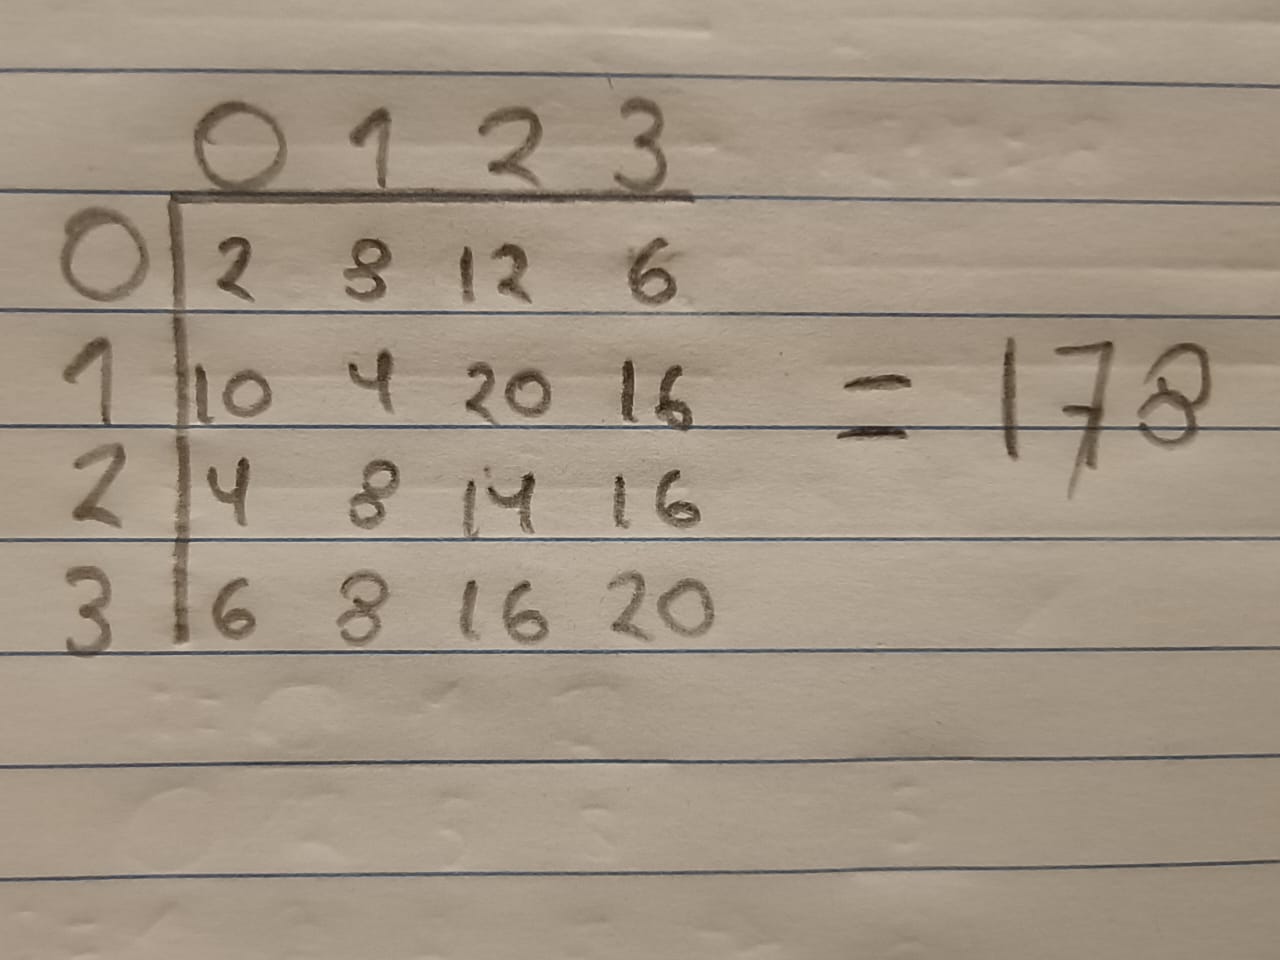 0 1 2 3
0 2 8 12 6
1 10 4 20 16 = 178
2 4 8 14 16
3 6 8 16 20